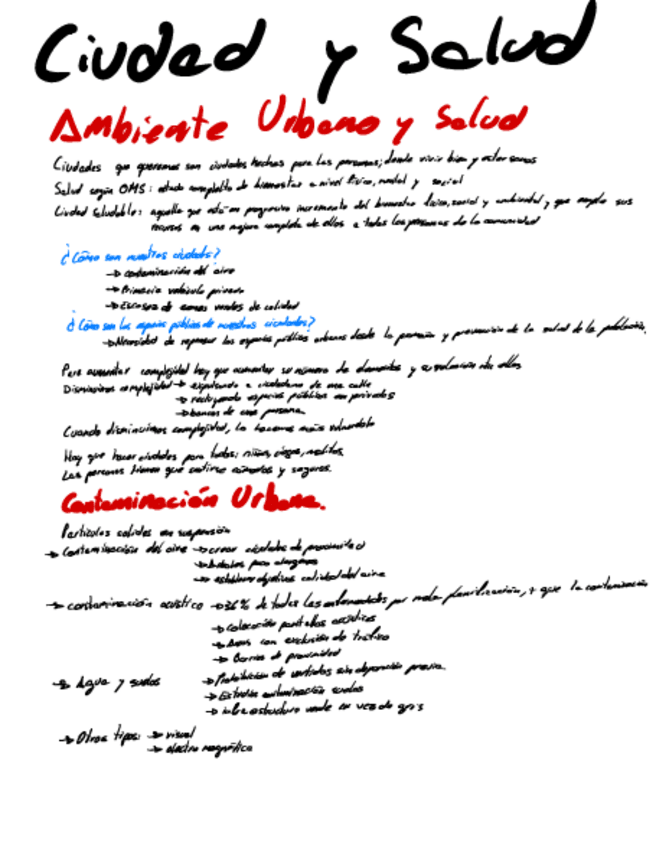 Ciudad y Salud
Ambiente Urbano y Salud
Ciudades que queremos son ciudades hechas para las personas; donde vivir bien y estar sanos
Salud según OMS: estado completo de bienestar a nivel físico, mental y social
Ciudad Saludable: aquella que está en progresivo incremento del bienestar físico, social y ambiental y que emplea sus
recursos en una mejora completa de ellos a todas las personas de la comunidad
¿Cómo son nuestras ciudades?
→ contaminación del aire
→ Primacía vehículo privado
→ Escasez de zonas verdes de calidad
¿Cómo son los espacios públicos de nuestras ciudades?
→ Necesidad de repensar los espacios públicos urbanos desde la promoción y prevención de la salud de la población.
Para aumentar complejidad hay que aumentar su número de elementos y relación de ellos
Disminuimos complejidad → expulsando a ciudadanos de una calle
→ espacios públicos en privados
→ bancos de una persona
Cuando disminuimos complejidad, la hacemos más vulnerable
Hay que hacer ciudades para todos: niños, ciegos,
Las personas tienen que sentirse cómodas y seguras.
Contaminación Urbana.
Partículas solidas en suspensión
→ Contaminación del aire → crear ciudades de proximidad
→ para
→ establecer objetivos calidad del aire
→ contaminación acústica → 36% de todas las enfermedades por mala planificación, + que la contaminación
→ Colocación pantallas acústicas
→ Áreas con exclusión de tráfico
→ Barrios de proximidad
→ Agua y suelos → Prohibición de vertidos sin depuración previa.
→ Estudios contaminación suelos
→ infraestructura verde en vez de gris
→ Otros tipos: → visual
→ electro magnética